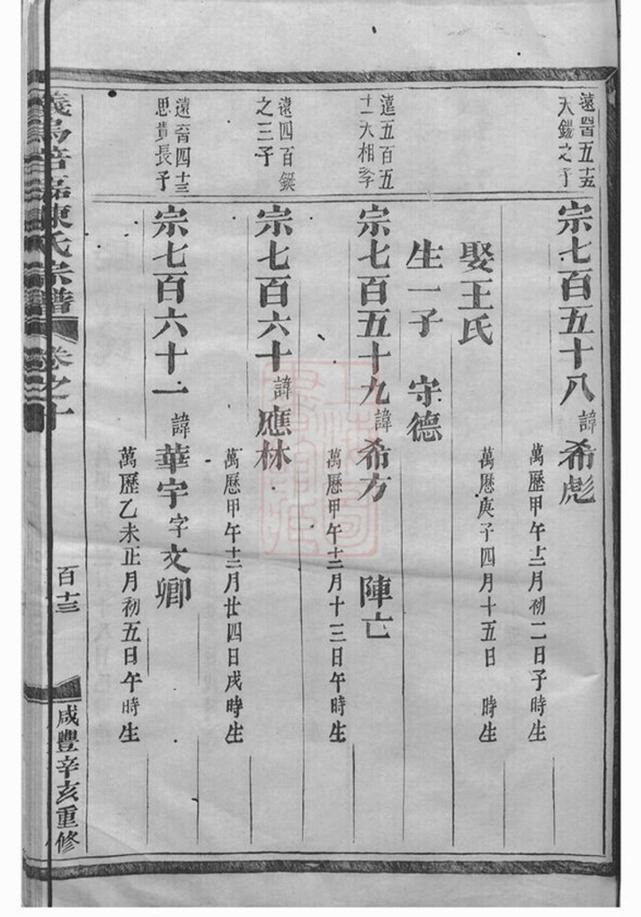 遠四百五十五
大鎧之子
宗七百五十八 諱 希彪
萬曆甲午十二月初二日子時生
娶王氏
萬曆庚子四月十五日 時生
生一子 守德
遠五百五
十二大相子
宗七百五十九 諱 希方 陣亡
萬曆甲午十二月十三日午時生
遠四百鋌
之三子
宗七百六十 諱 應林
萬歷甲午十二月廿四日戌時生
遠六百四十三
思貴長子
宗七百六十一 諱 華宇 字 文卿
萬歷乙未正月初五日午時生
義烏 陳氏宗譜 卷之十
百十三
咸豐辛亥重修